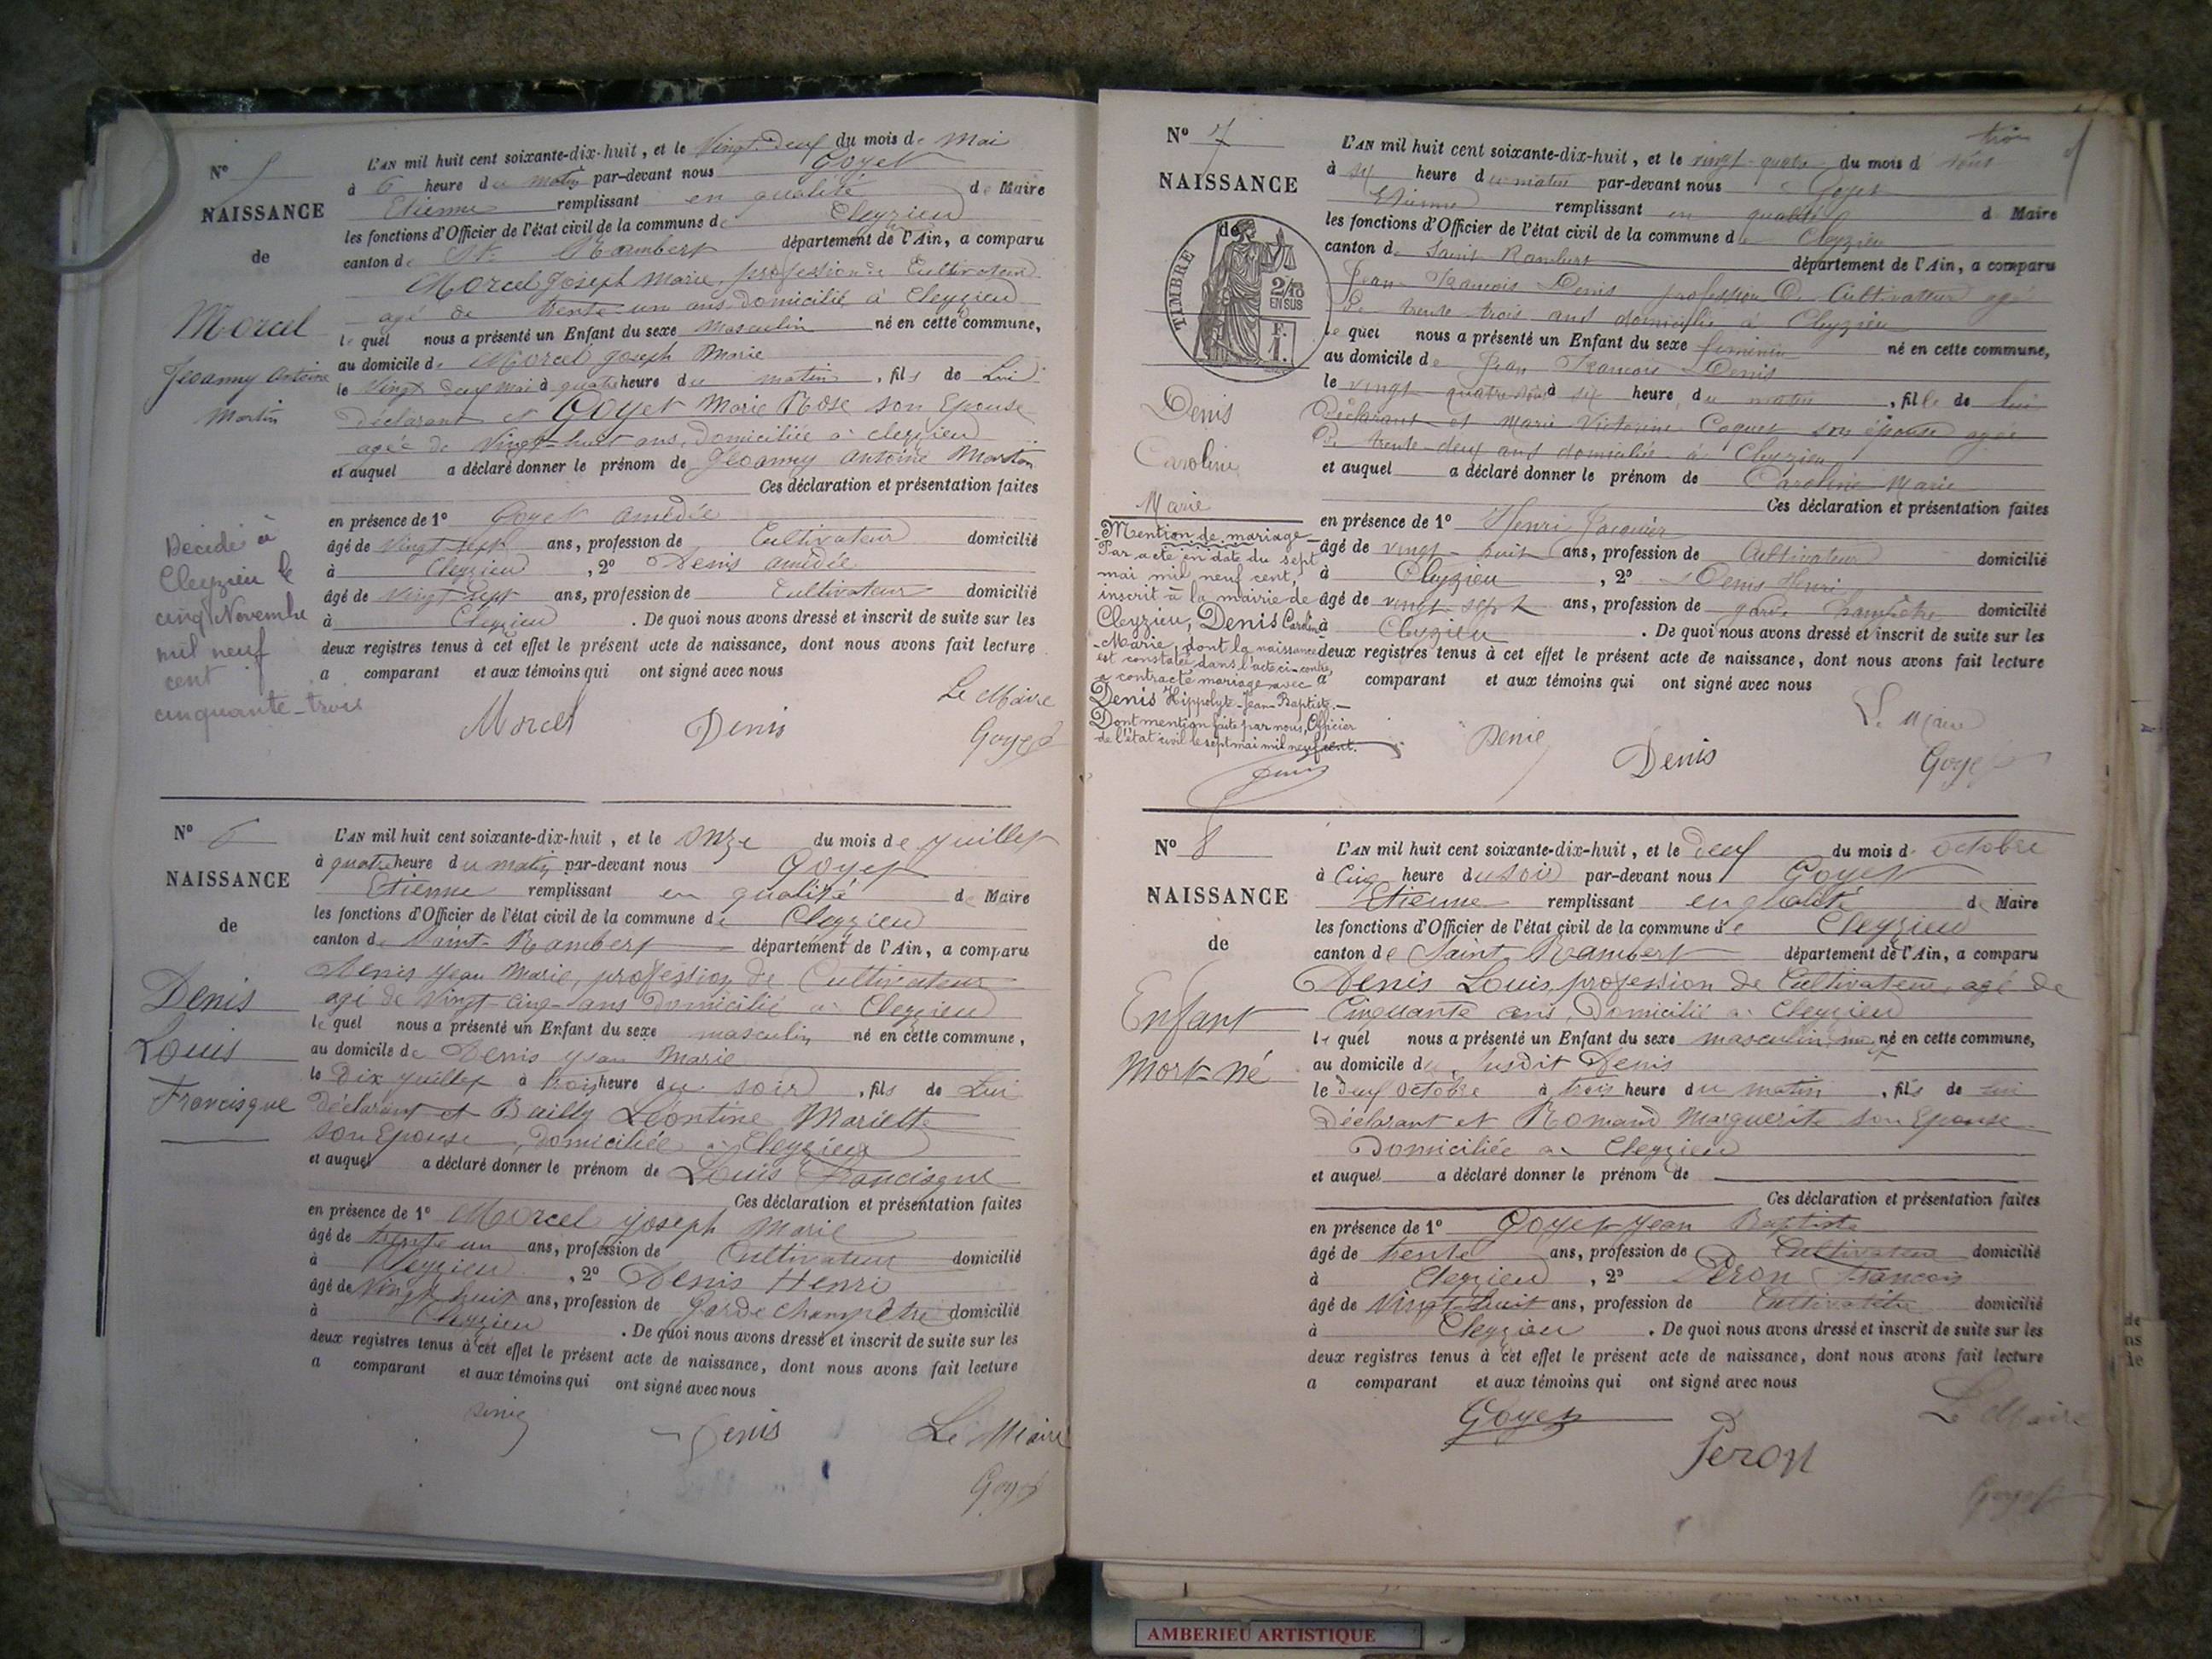 N° 5
NAISSANCE
de
Morcel
Jeoanny Antoine
Martin
Décédé à
Cleyzieu le
cinq Novembre
mil neuf
cent
cinquante-trois
L'AN mil huit cent soixante-dix-huit, et le Vingt-Deux du mois de Mai
à 6 heure du matin par-devant nous Goyet
Etienne remplissant en qualité de Maire
les fonctions d'Officier de l'état civil de la commune de Cleyzieu
canton de St. Rambert département de l'Ain, a comparu
Morcel Joseph Marie, profession de Cultivateur
agé de trente-un ans Domicilié à Cleyzieu
lequel nous a présenté un Enfant du sexe masculin né en cette commune,
au domicile de Morcel Joseph Marie
le Vingt Deux Mai à quatre heure du matin, fils de Lui
Déclarant et Goyet Marie Rose son Epouse
agée de Vingt-huit ans, Domiciliée à cleyzieu
et auquel a déclaré donner le prénom de Jeoanny Antoine Martin
Ces déclaration et présentation faites
en présence de 1° Goyet Amédée
âgé de Vingt-sept ans, profession de Cultivateur domicilié
à Cleyzieu, 2° Denis Amédée
âgé de Vingt sept ans, profession de Cultivateur domicilié
à Cleyzieu. De quoi nous avons dressé et inscrit de suite sur les
deux registres tenus à cet effet le présent acte de naissance, dont nous avons fait lecture
a comparant et aux témoins qui ont signé avec nous
Le Maire
Morcel Denis Goyet
N° 6
NAISSANCE
de
Denis
Louis
Francisque
L'AN mil huit cent soixante-dix-huit, et le onze du mois de Juillet
à quatre heure du matin par-devant nous Goyet
Etienne remplissant en qualité de Maire
les fonctions d'Officier de l'état civil de la commune de Cleyzieu
canton de Saint-Rambert département de l'Ain, a comparu
Denis Jean Marie, profession de Cultivateur
agé de Vingt-cinq ans Domicilié à Cleyzieu
lequel nous a présenté un Enfant du sexe masculin né en cette commune,
au domicile de Denis Jean Marie
le Dix Juillet à trois heure du soir, fils de Lui
Déclarant et Bailly Léontine Mariette
son Epouse, Domiciliée à Cleyzieu
et auquel a déclaré donner le prénom de Louis Francisque
Ces déclaration et présentation faites
en présence de 1° Morcel Joseph Marie
âgé de trente un ans, profession de Cultivateur domicilié
à Cleyzieu, 2° Denis Henri
âgé de Vingt huit ans, profession de Garde Champêtre domicilié
à Cleyzieu. De quoi nous avons dressé et inscrit de suite sur les
deux registres tenus à cet effet le présent acte de naissance, dont nous avons fait lecture
a comparant et aux témoins qui ont signé avec nous
Denis Denis Le Maire
Goyet
N° 7
NAISSANCE
de
TIMBRE
2/10
EN SUS
F.
1.
Denis
Caroline
Marie
Mention de mariage
Par acte en date du sept
mai mil neuf cent,
inscrit à la mairie de
Cleyzieu, Denis Caroline
-Marie, dont la naissance
est constatée dans l'acte ci-contre,
a contracté mariage avec
Denis Hippolyte-Jean-Baptiste.
Dont mention faite par nous, Officier
de l'état civil le sept mai mil neuf cent.
L'AN mil huit cent soixante-dix-huit, et le vingt-quatre du mois d'août
à six heure du matin par-devant nous Goyet
Etienne remplissant en qualité de Maire
les fonctions d'Officier de l'état civil de la commune de Cleyzieu
canton de Saint Rambert département de l'Ain, a comparu
Jean-Francois Denis profession de Cultivateur agé
de trente-trois ans domicilié à Cleyzieu
lequel nous a présenté un Enfant du sexe feminin né en cette commune,
au domicile de Jean Francois Denis
le vingt quatre août à six heure du matin, fille de lui
Déclarant et Marie Victorine Coquet son épouse agée
de trente-deux ans domiciliée à Cleyzieu
et auquel a déclaré donner le prénom de Caroline Marie
Ces déclaration et présentation faites
en présence de 1° Henri Jacquier
âgé de vingt-huit ans, profession de Cultivateur domicilié
à Cleyzieu, 2° Denis Henri
âgé de vingt-sept ans, profession de garde champêtre domicilié
à Cleyzieu. De quoi nous avons dressé et inscrit de suite sur les
deux registres tenus à cet effet le présent acte de naissance, dont nous avons fait lecture
a comparant et aux témoins qui ont signé avec nous
Le Maire
Denis Denis Goyet
N° 8
NAISSANCE
de
Enfant
Mort-né
L'AN mil huit cent soixante-dix-huit, et le deux du mois d'Octobre
à Cinq heure du soir par-devant nous Goyet
Etienne remplissant en qualité de Maire
les fonctions d'Officier de l'état civil de la commune de Cleyzieu
canton de Saint-Rambert département de l'Ain, a comparu
Denis Louis, profession de Cultivateur, agé de
Cinquante ans, Domicilié à Cleyzieu
lequel nous a présenté un Enfant du sexe masculin mort né en cette commune,
au domicile du susdit Denis
le Deux Octobre à trois heure du matin, fils de lui
Déclarant et Romand Marguerite son Epouse
Domiciliée à Cleyzieu
et auquel a déclaré donner le prénom de
Ces déclaration et présentation faites
en présence de 1° Goyet Jean Baptiste
âgé de trente ans, profession de Cultivateur domicilié
à Cleyzieu, 2° Peron Francois
âgé de Vingt huit ans, profession de Cultivateur domicilié
à Cleyzieu. De quoi nous avons dressé et inscrit de suite sur les
deux registres tenus à cet effet le présent acte de naissance, dont nous avons fait lecture
a comparant et aux témoins qui ont signé avec nous
Goyet Peron Le Maire
Goyet
AMBERIEU ARTISTIQUE